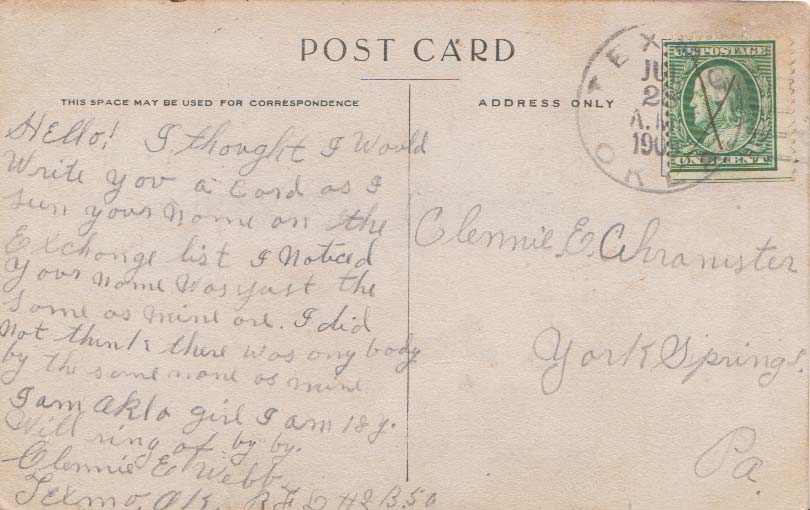 POST CARD
THIS SPACE MAY BE USED FOR CORRESPONDENCE
ADDRESS ONLY
Hello! I thought I Would
Write you a Card as I
seen your name on the
Exchange list I Noticed
your name was just the
same as mine are. I did
not think there was any body
by the same name as mine
I am Okla girl I am 18 y.
Will ring of by by.
Clennie E Webb
Texmo, Ok. R F D #2 B. 50
TEX
OKL
JU
28
A.M
190
U.S. POSTAGE
ONE CENT
Clennie, E,
York Springs.
Pa.